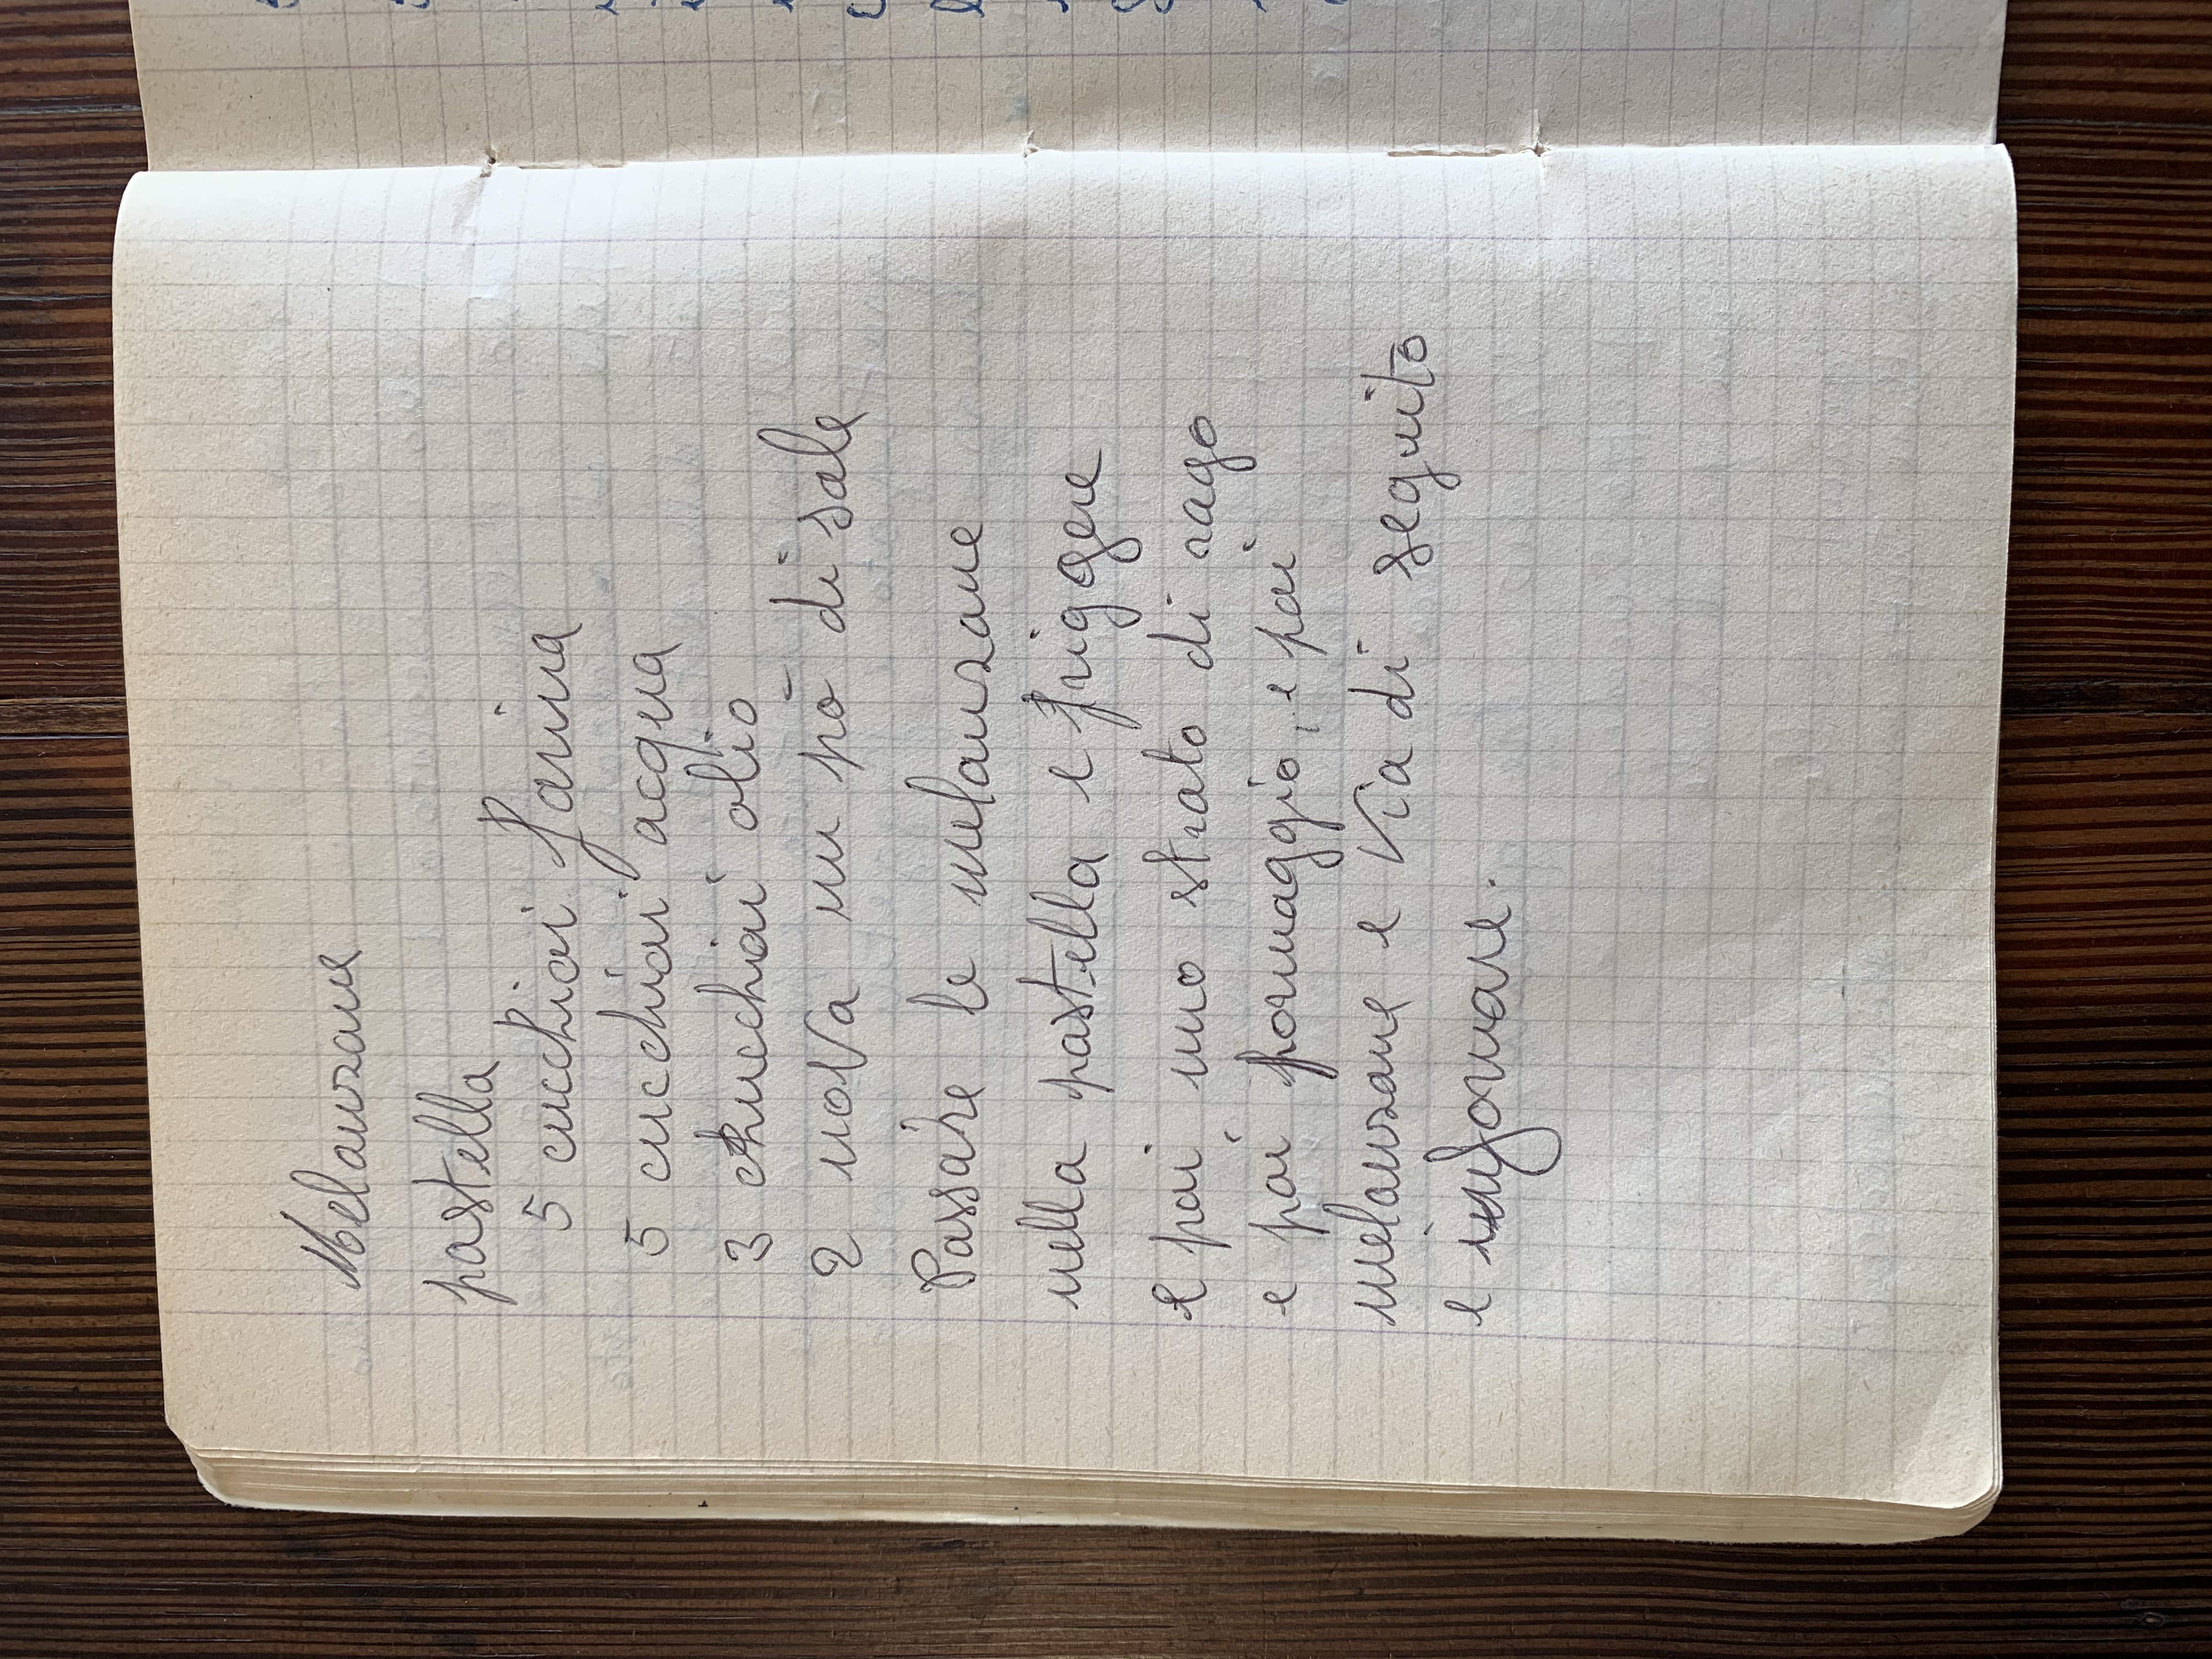 Melanzane
pastella
5 cucchiai farina
5 cucchiai acqua
3 chucchiai olio
2 uova un pò di sale
Passare le melanzane
nella pastella e friggere
e poi uno strato di rago
e poi formaggio, e poi
melanzane e via di seguito
e infornare.